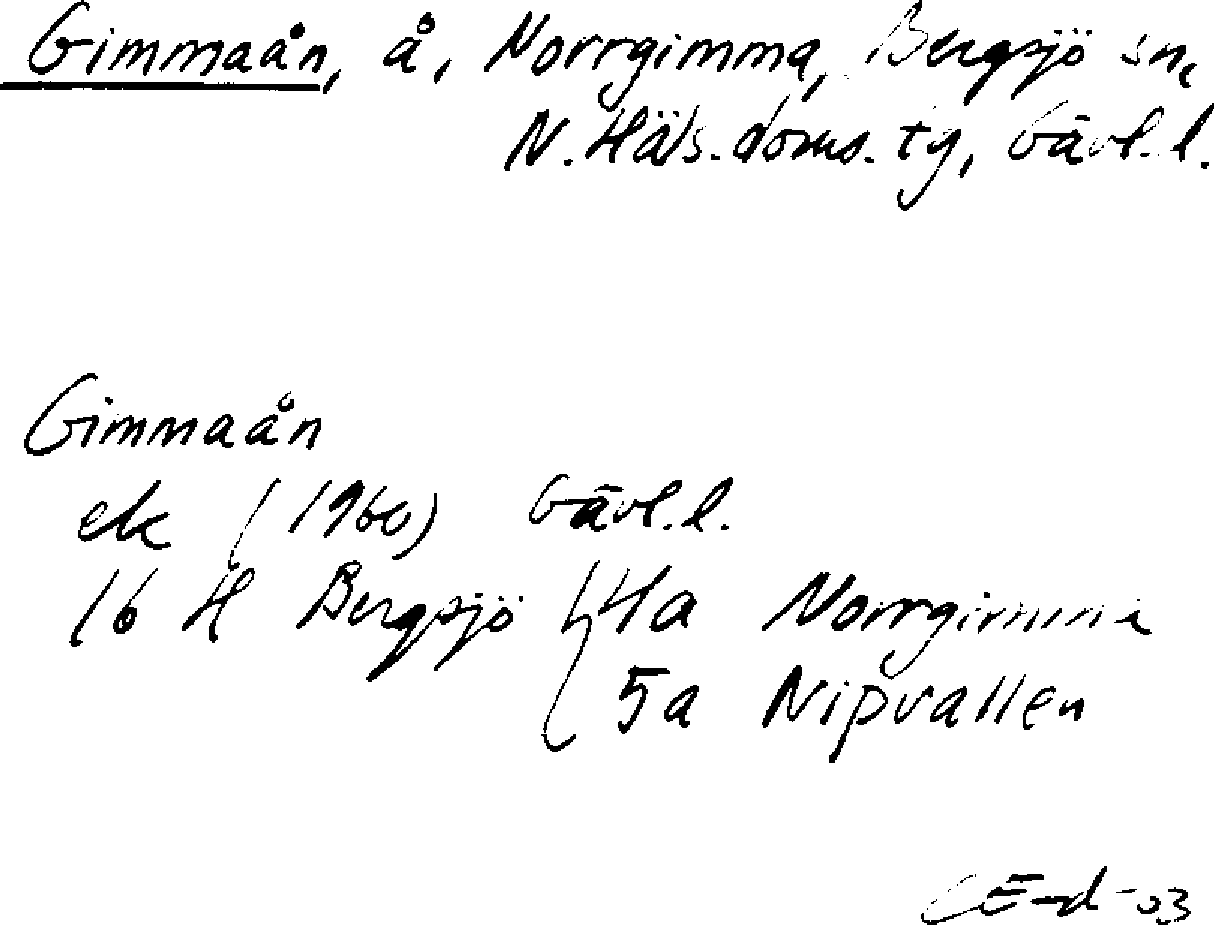 Gimmaån, å, Norrgimma, Bergsjö sn,
N. Häls. doms. tg, Gävl. l.
Gimmaån
ek (1960) Gävl. l.
16 H Bergsjö 4a Norrgimma
5a Nipvallen
CE-d -03